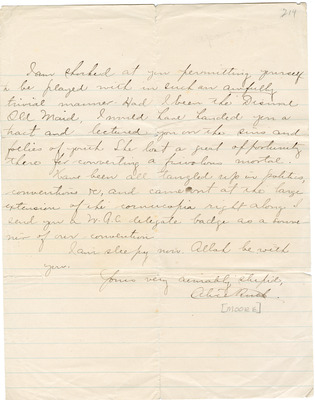 219
I am shocked at you permitting yourself
to be played with in such an awfully
trivial manner. Had I been the Dismal
Old Maid, I would have handed you a
tract and lectured you on the sins and
follies of youth. She lost a great opportunity
there for converting a frivolous mortal.
Have been all tangled up in politics,
conventions &c, and came out at the large
extension of the cornucopia right along. I
send you a W.F.C. delegate badge as a souve
nir of our convention.
I am sleepy now. Allah be with
you.
Yours very amiably stupid,
Alice Ruth
[MOORE]